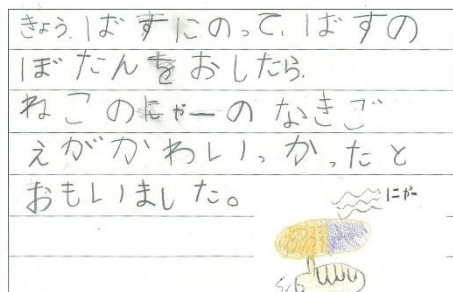 きょう、ばすにのって、ばすの
ぼたんをおしたら、
ねこのにゃーのなきご
えがかわいっかったと
おもいました。
にゃー